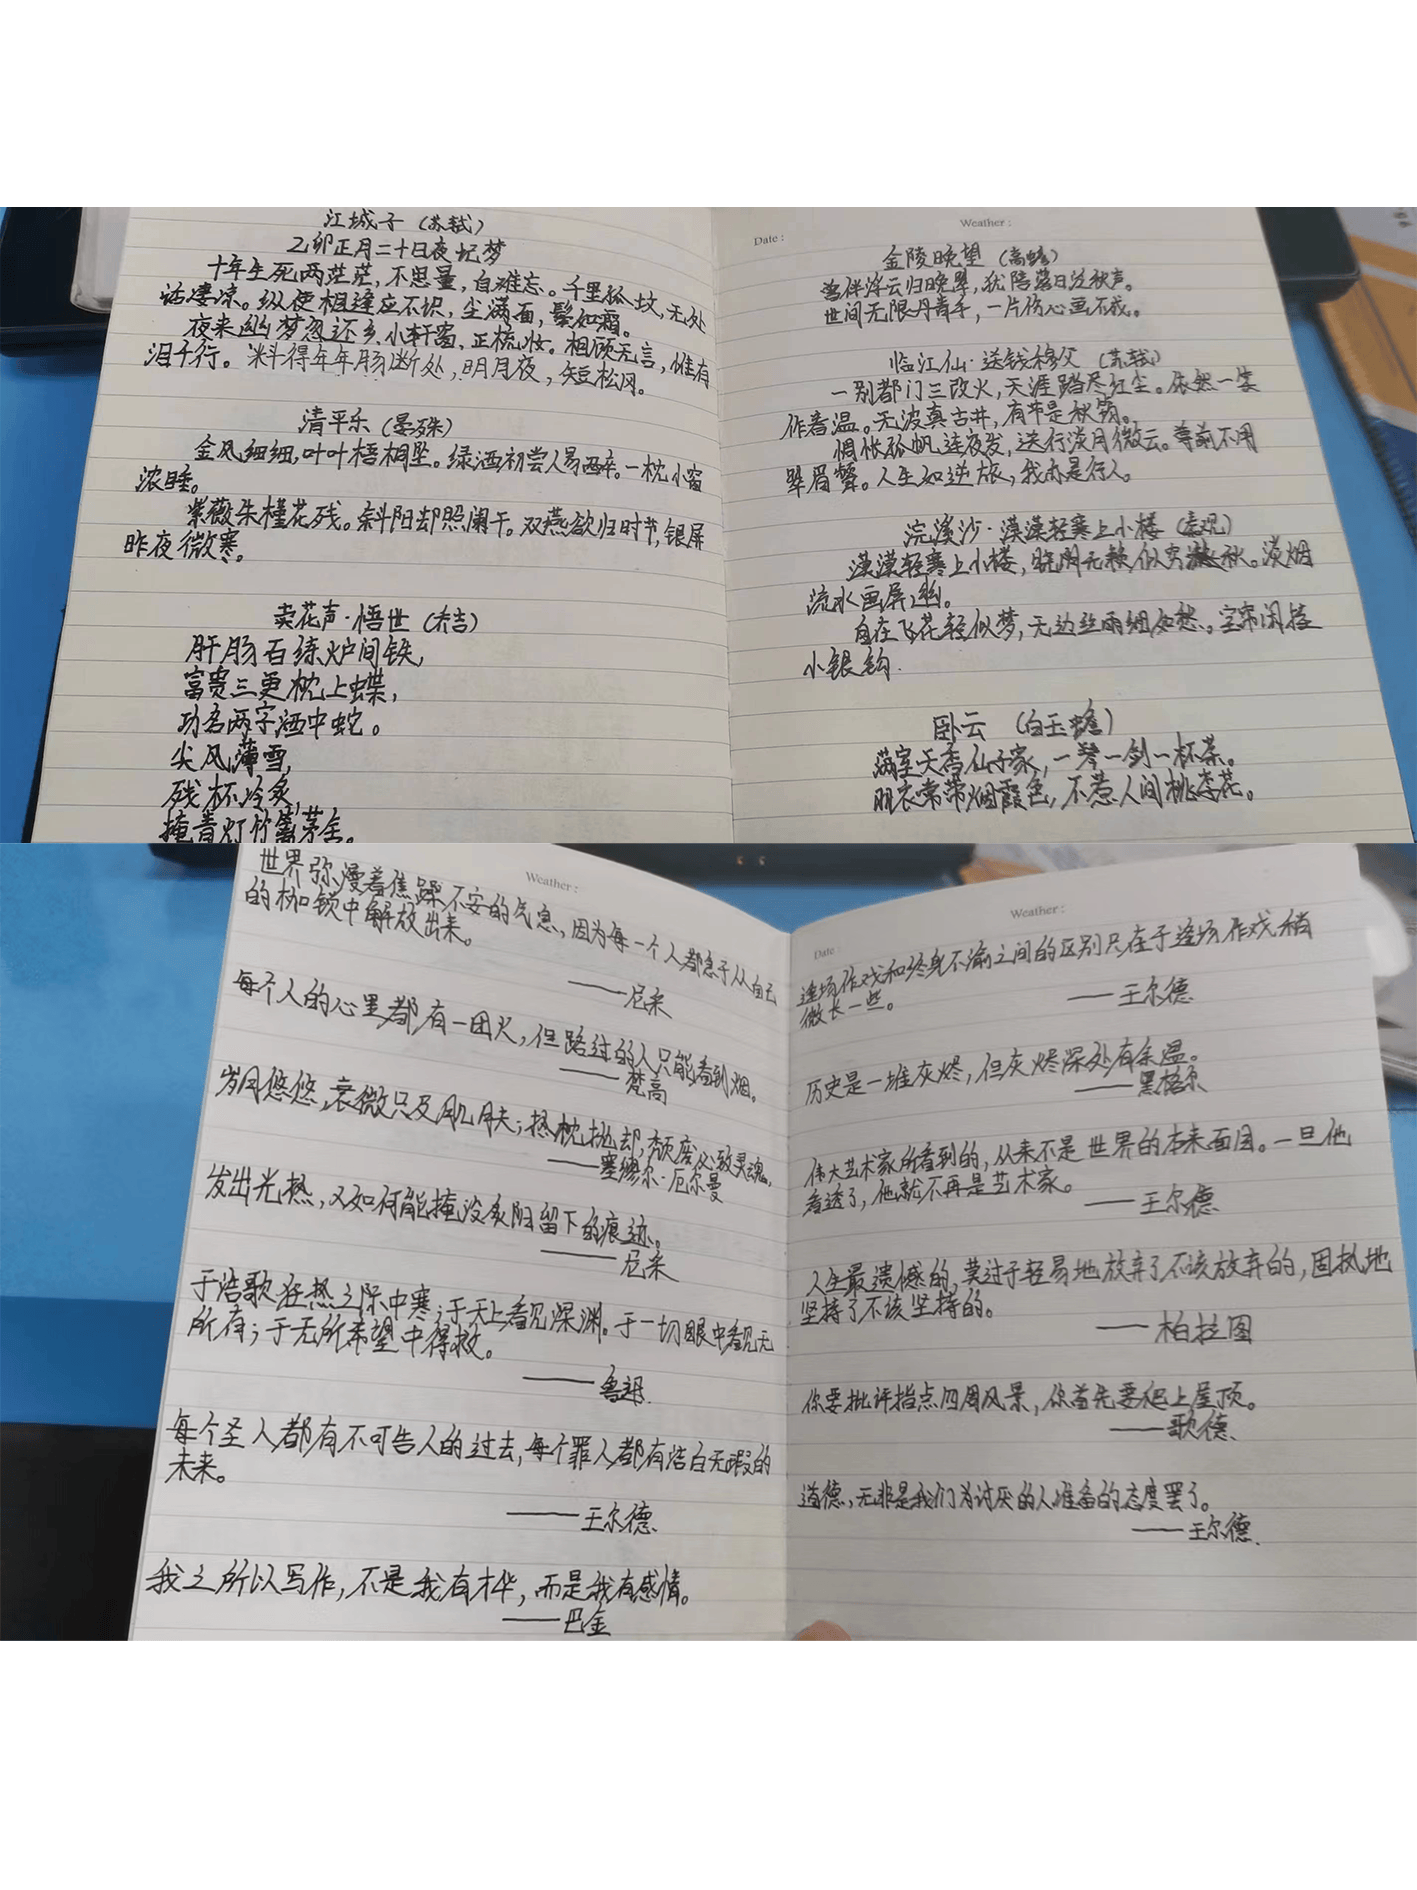 江城子（苏轼）
乙卯正月二十日夜记梦
十年生死两茫茫，不思量，自难忘。千里孤坟，无处
话凄凉。纵使相逢应不识，尘满面，鬓如霜。
夜来幽梦忽还乡，小轩窗，正梳妆。相顾无言，惟有
泪千行。料得年年肠断处，明月夜，短松冈。
清平乐（晏殊）
金风细细，叶叶梧桐坠。绿酒初尝人易醉。一枕小窗
浓睡。
紫薇朱槿花残。斜阳却照阑干。双燕欲归时节，银屏
昨夜微寒。
卖花声·悟世（乔吉）
肝肠百练炉间铁，
富贵三更枕上蝶，
功名两字酒中蛇。
尖风薄雪，
残杯冷炙，
掩青灯竹篱茅舍。
Weather :
Date :
金陵晚望（高蟾）
曾伴浮云归晚翠，犹陪落日泛秋声。
世间无限丹青手，一片伤心画不成。
临江仙·送钱穆父（苏轼）
一别都门三改火，天涯踏尽红尘。依然一笑
作春温。无波真古井，有节是秋筠。
惆怅孤帆连夜发，送行淡月微云。尊前不用
翠眉颦。人生如逆旅，我亦是行人。
浣溪沙·漠漠轻寒上小楼（秦观）
漠漠轻寒上小楼，晓阴无赖似穷秋。淡烟
流水画屏幽。
自在飞花轻似梦，无边丝雨细如愁。宝帘闲挂
小银钩.
卧云（白玉蟾）
满室天香仙子家，一琴一剑一杯茶。
羽衣常带烟霞色，不惹人间桃李花。
Weather :
世界弥漫着焦躁不安的气息，因为每一个人都急于从自己
的枷锁中解放出来。
——尼采
每个人的心里都有一团火，但路过的人只能看到烟。
——梵高
岁月悠悠，衰微只及肌肤；热忱抛却，颓废必致灵魂。
——塞缪尔·厄尔曼
发出光热，又如何能掩没炙阳留下的痕迹。
——尼采
于浩歌狂热之际中寒；于天上看见深渊。于一切眼中看见无
所有；于无所希望中得救。
——鲁迅.
每个圣人都有不可告人的过去，每个罪人都有洁白无瑕的
未来。
——王尔德.
我之所以写作，不是我有才华，而是我有感情。
——巴金
Weather :
Date :
逢场作戏和终身不渝之间的区别只在于逢场作戏稍
微长一些。
——王尔德
历史是一堆灰烬，但灰烬深处有余温。
——黑格尔
伟大艺术家所看到的，从来不是世界的本来面目。一旦他
看透了，他就不再是艺术家。
——王尔德
人生最遗憾的，莫过于轻易地放弃了不该放弃的，固执地
坚持了不该坚持的。
——柏拉图
你要批评指点四周风景，你首先要爬上屋顶。
——歌德.
道德，无非是我们为讨厌的人准备的态度罢了。
——王尔德.